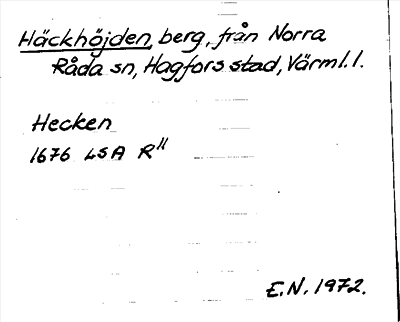 Häckhöjden, berg, från Norra
Råda sn, Hagfors stad, Värml. l.
Hecken
1676 LSA R"
E.N. 1972.